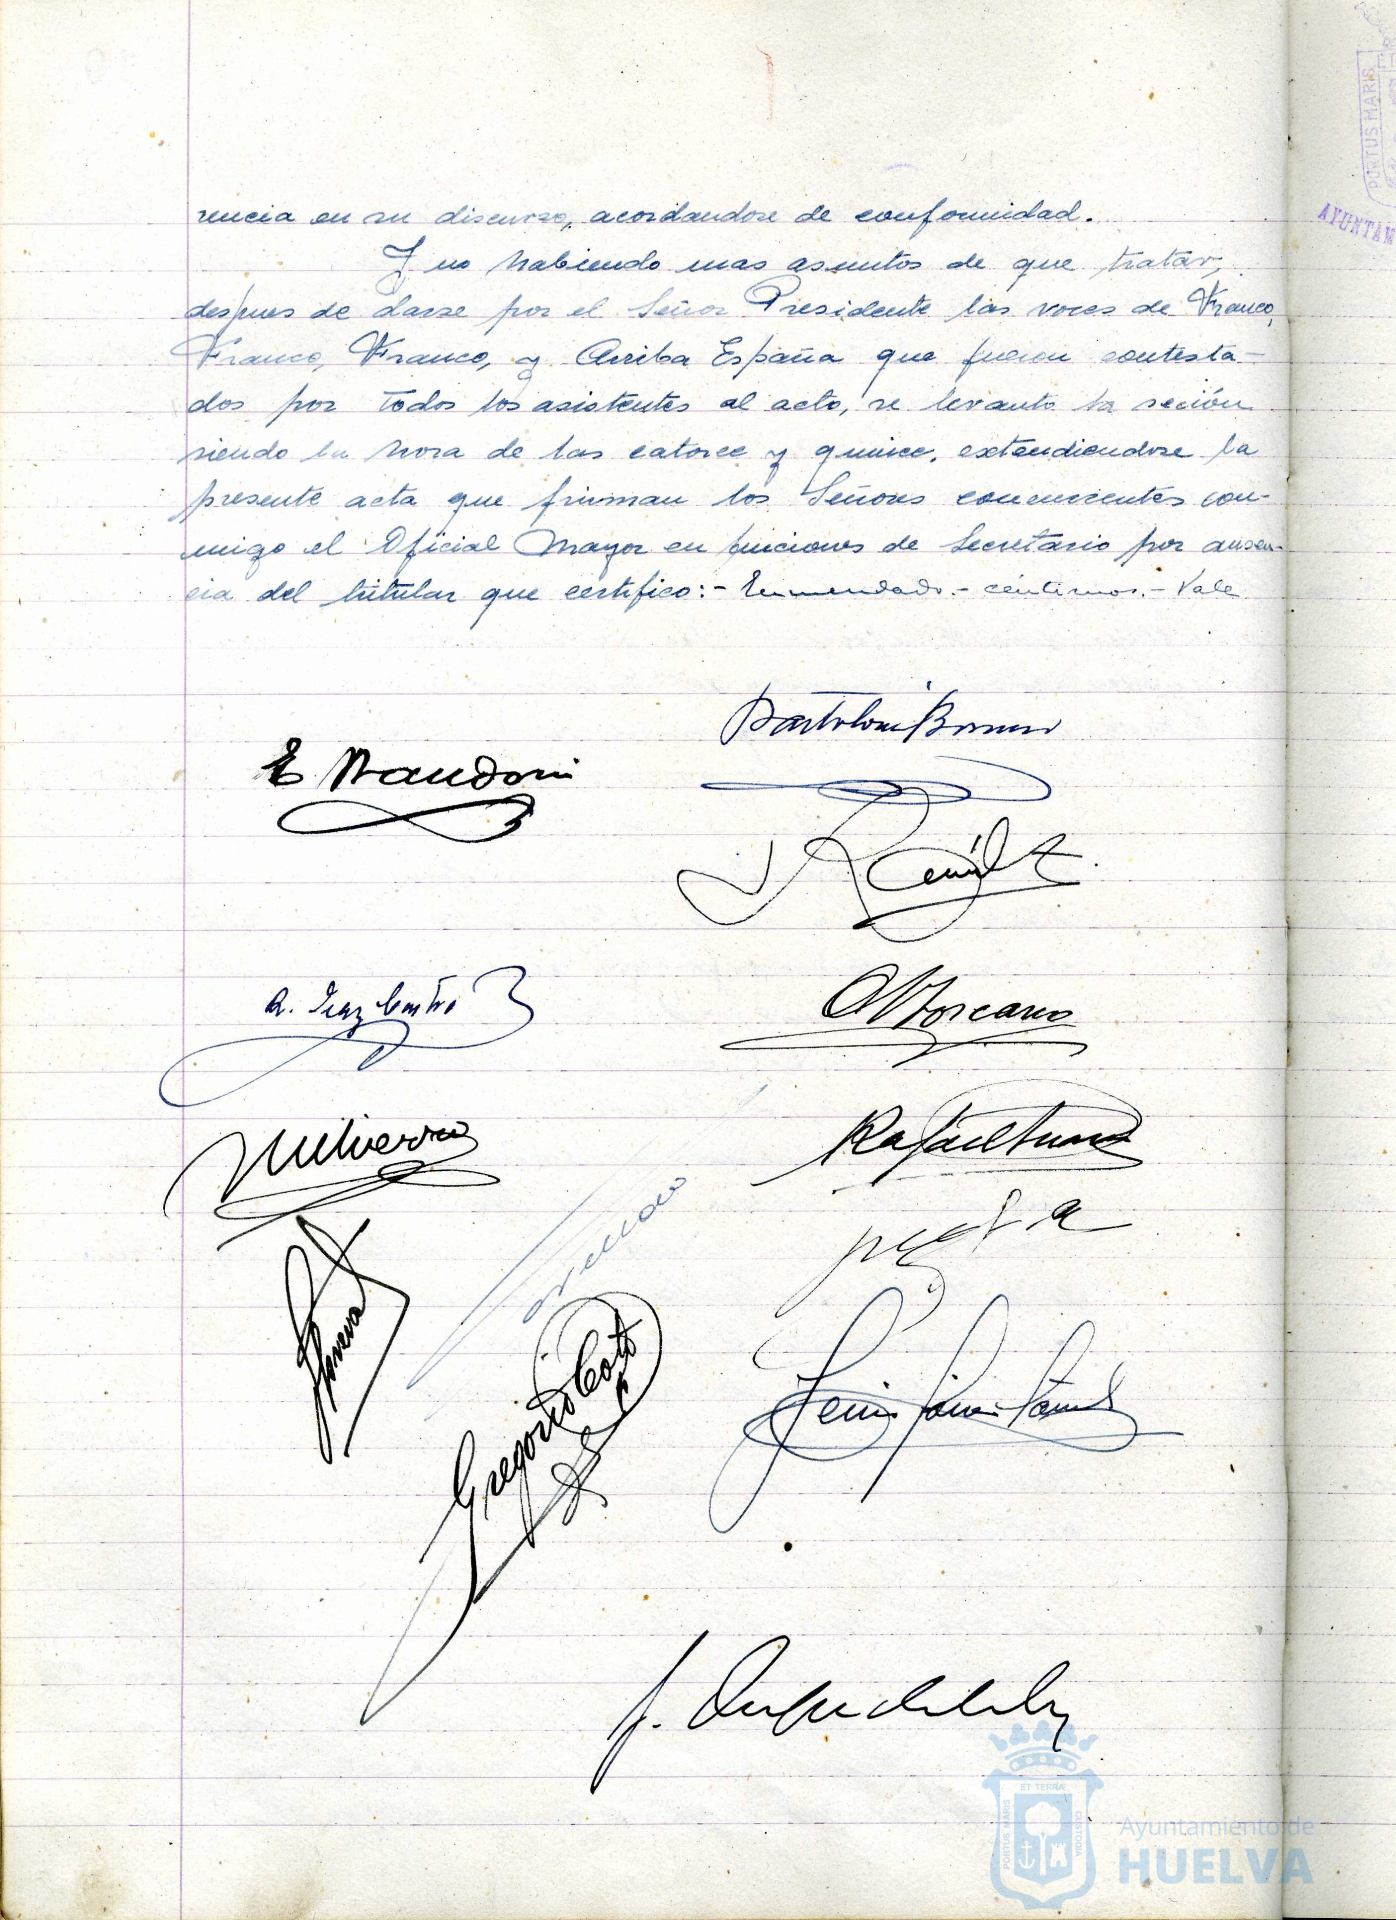 rencia en su discurso, acordandose de conformidad.
Y no habiendo mas asuntos de que tratar,
despues de darse por el Señor Presidente las voces de Franco,
Franco, Franco, y Arriba España que fueron contesta-
dos por todos los asistentes al acto, se levanto la seción
siendo la hora de las catorce y quince, extendiendose la
presente acta que firman los Señores concurrentes con-
migo el Oficial Mayor en funciones de Secretario por ausen-
cia del titular que certifico:- Enmendado.- céntimos.- Vale
Rafael
Gregorio Coto
PORTUS MARIS
AYUNTAM
ET TERRA
PORTUS MARIS
CUSTODIA
Ayuntamiento de
HUELVA